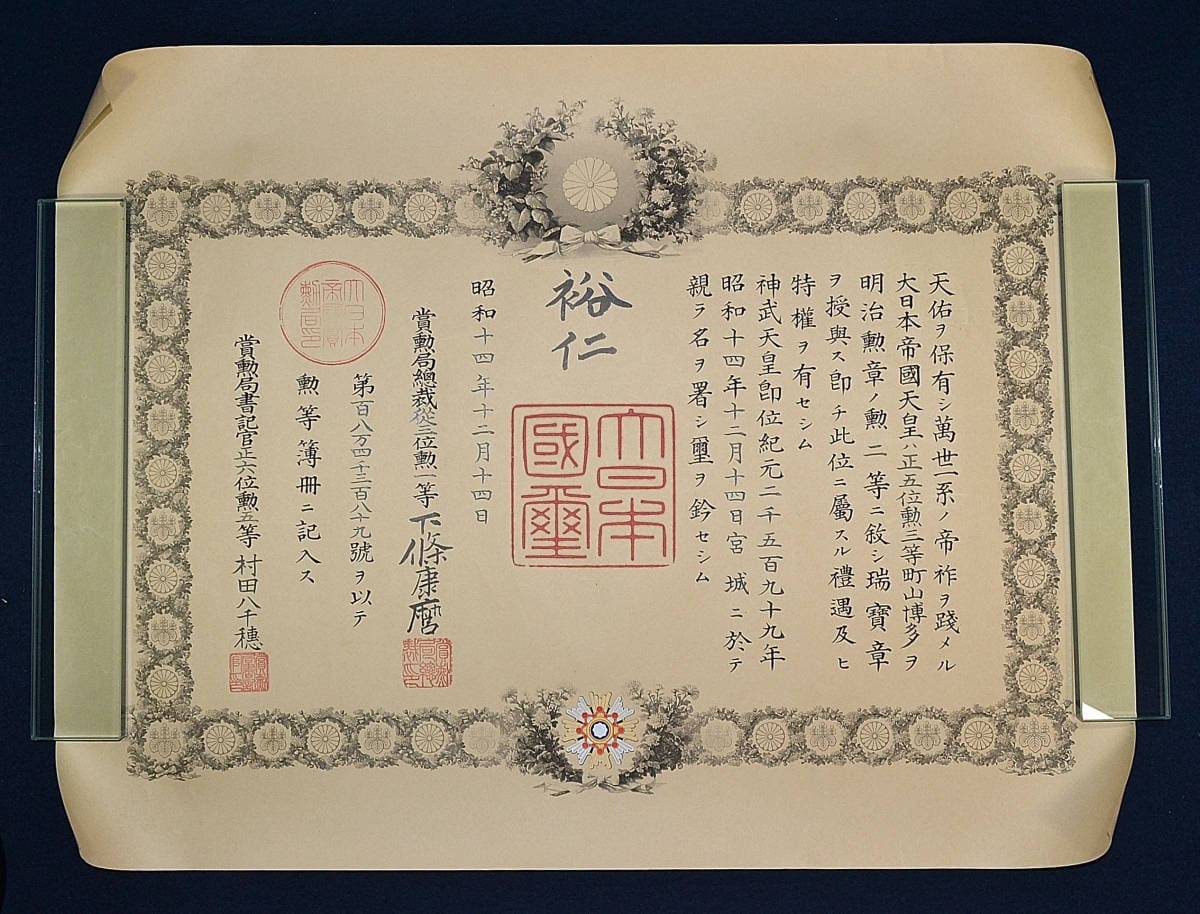 天佑ヲ保有シ萬世一系ノ帝祚ヲ踐メル
大日本帝國天皇ハ正五位勲三等町山博多ヲ
明治勲章ノ勲二等ニ敍シ瑞寶章
ヲ授與ス卽チ此位ニ屬スル禮遇及ヒ
特權ヲ有セシム
神武天皇卽位紀元二千五百九十九年
昭和十四年十二月十四日宮城ニ於テ
親ラ名ヲ署シ璽ヲ鈐セシム
裕仁
大日本國璽
昭和十四年十二月十四日
賞勲局總裁從三位勲一等下條康麿
第百八万四千三百八十九號ヲ以テ
勲等簿冊ニ記入ス
賞勲局書記官正六位勲五等村田八千穗